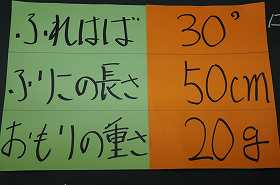 ふれはば 30°
ふりこの長さ 50cm
おもりの重さ 20g